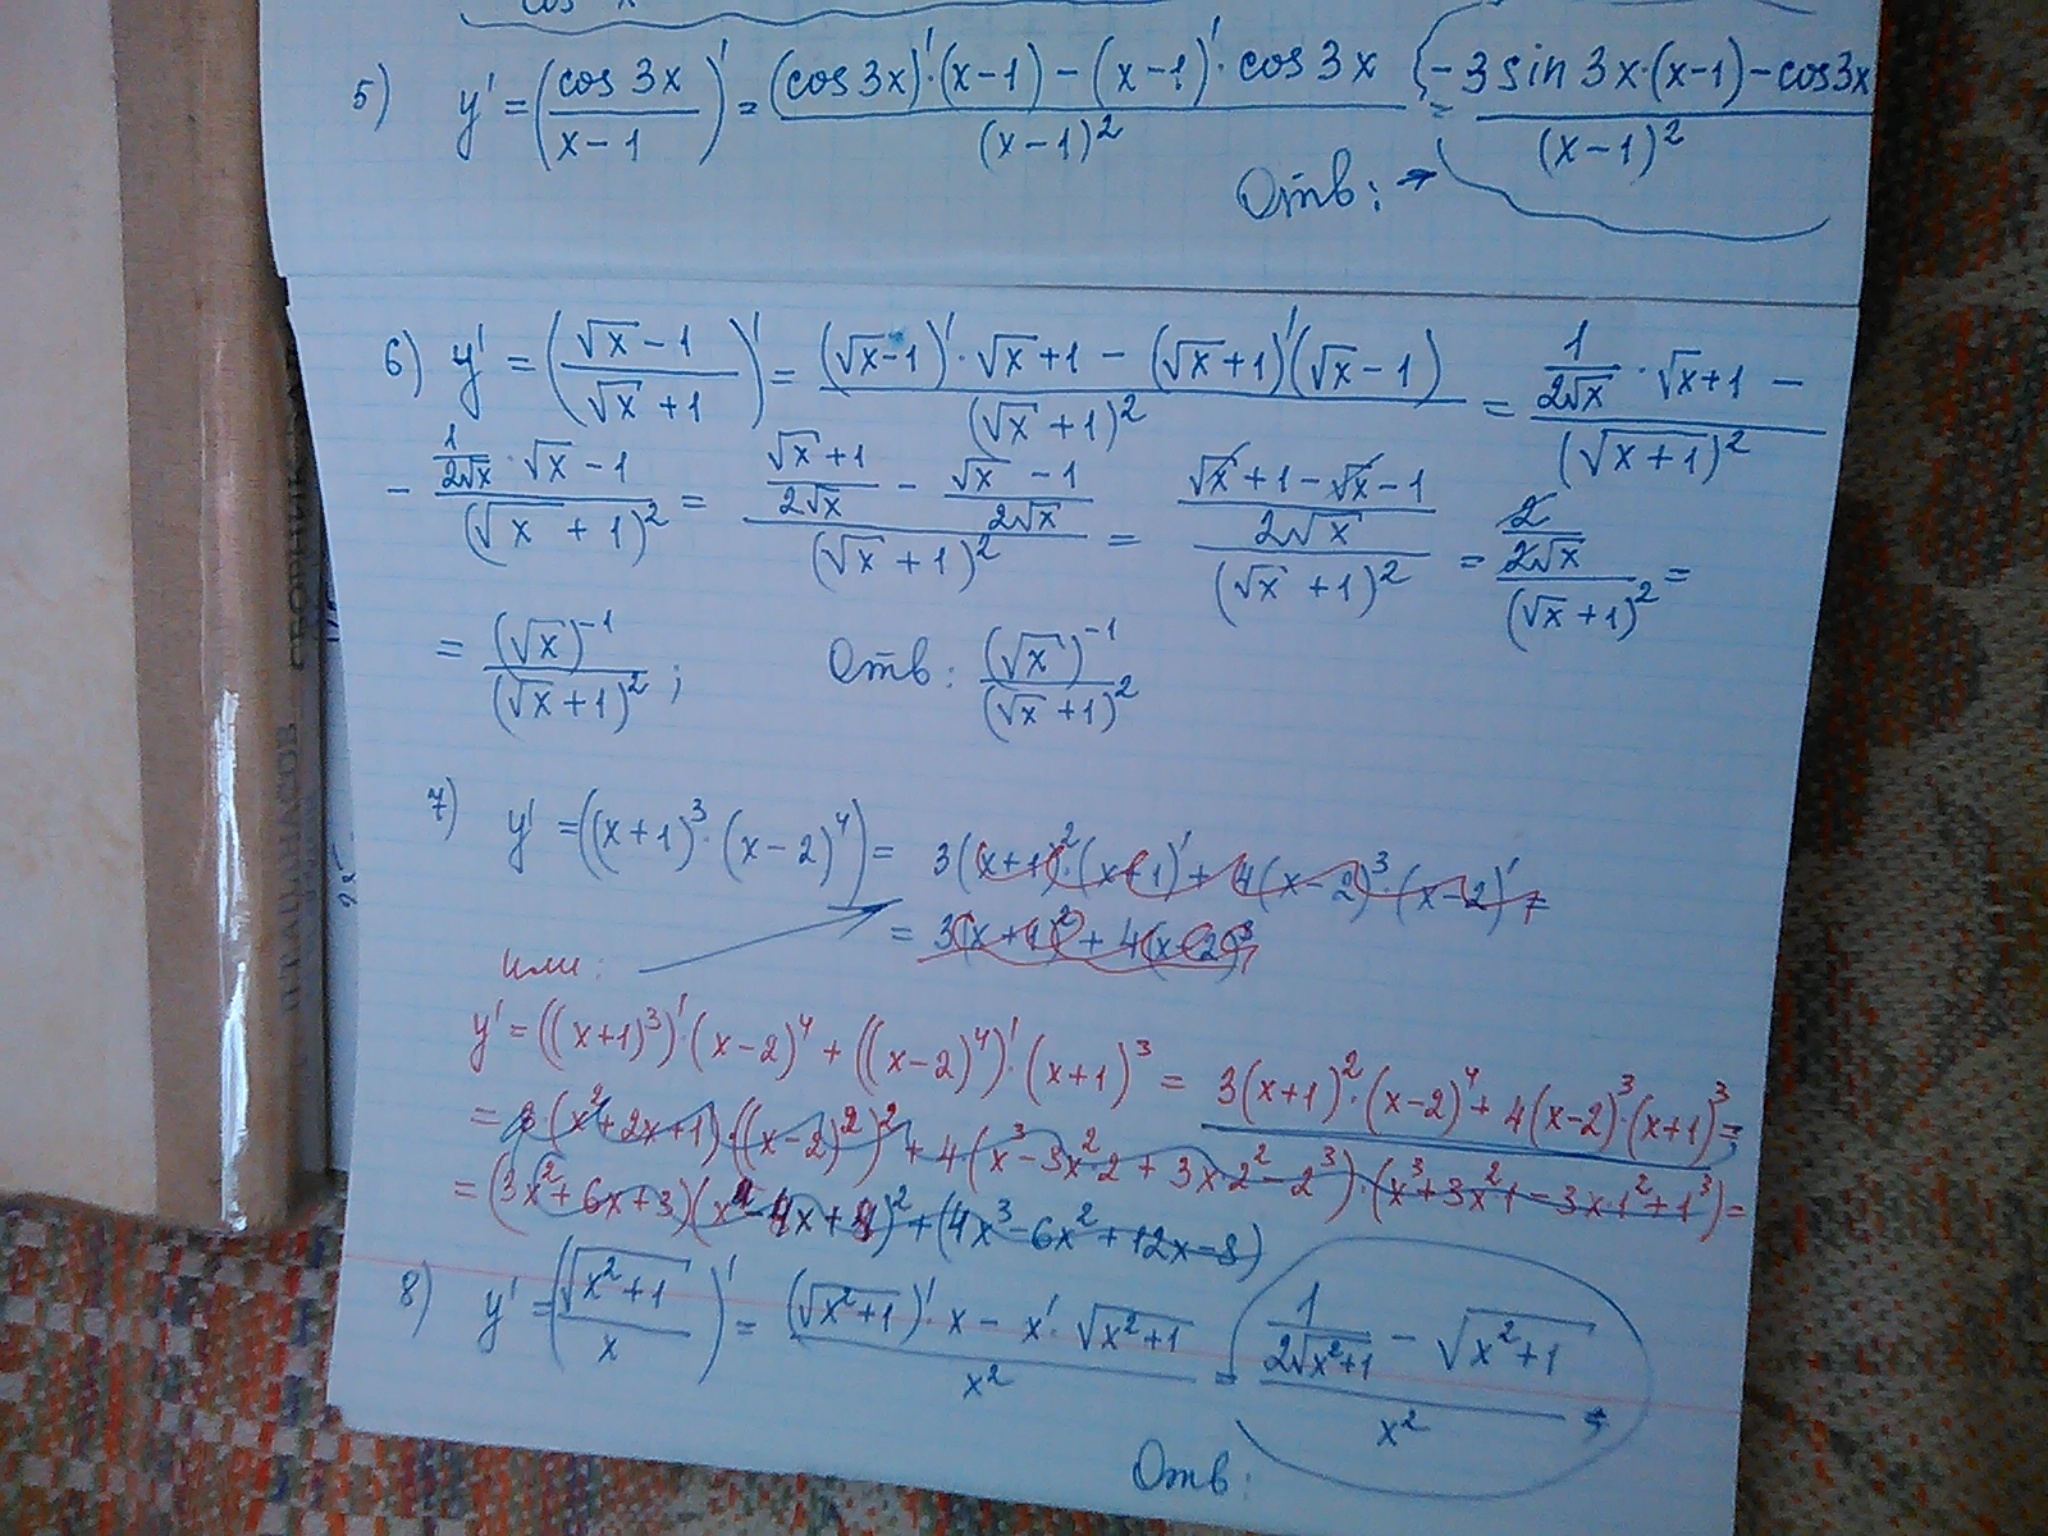 cos x
5) y' = (cos 3x / x-1)' = (cos 3x)'·(x-1) - (x-1)'·cos 3x / (x-1)² = -3 sin 3x·(x-1) - cos 3x / (x-1)²
Отв: →
6) y' = (√x - 1 / √x + 1)' = (√x-1)'·√x+1 - (√x+1)'(√x-1) / (√x+1)² = 1/2√x · √x+1 - / (√x+1)²
- 1/2√x · √x-1 / (√x+1)² = √x+1 / 2√x - √x-1 / 2√x / (√x+1)² = √x+1-√x-1 / 2√x / (√x+1)² = 2 / 2√x / (√x+1)² =
= (√x)⁻¹ / (√x+1)² ; Отв: (√x)⁻¹ / (√x+1)²
7) y' = ((x+1)³·(x-2)⁴) = 3(x+1)²·(x+1)' + 4(x-2)³·(x-2)' =
= 3(x+1)² + 4(x-2)³
или:
y' = ((x+1)³)'·(x-2)⁴ + ((x-2)⁴)'·(x+1)³ = 3(x+1)²·(x-2)⁴ + 4(x-2)³·(x+1)³ =
= 3(x²+2x+1)·((x-2)²)² + 4·(x³-3x²·2+3x·2²-2³)·(x³+3x²1-3x·1²+1³) =
= (3x²+6x+3)(x²-4x+4)² + (4x³-6x²+12x-8)
8) y' = (√x²+1 / x)' = (√x²+1)'·x - x'·√x²+1 / x² = 1/2√x²+1 - √x²+1 / x² ;
Отв: